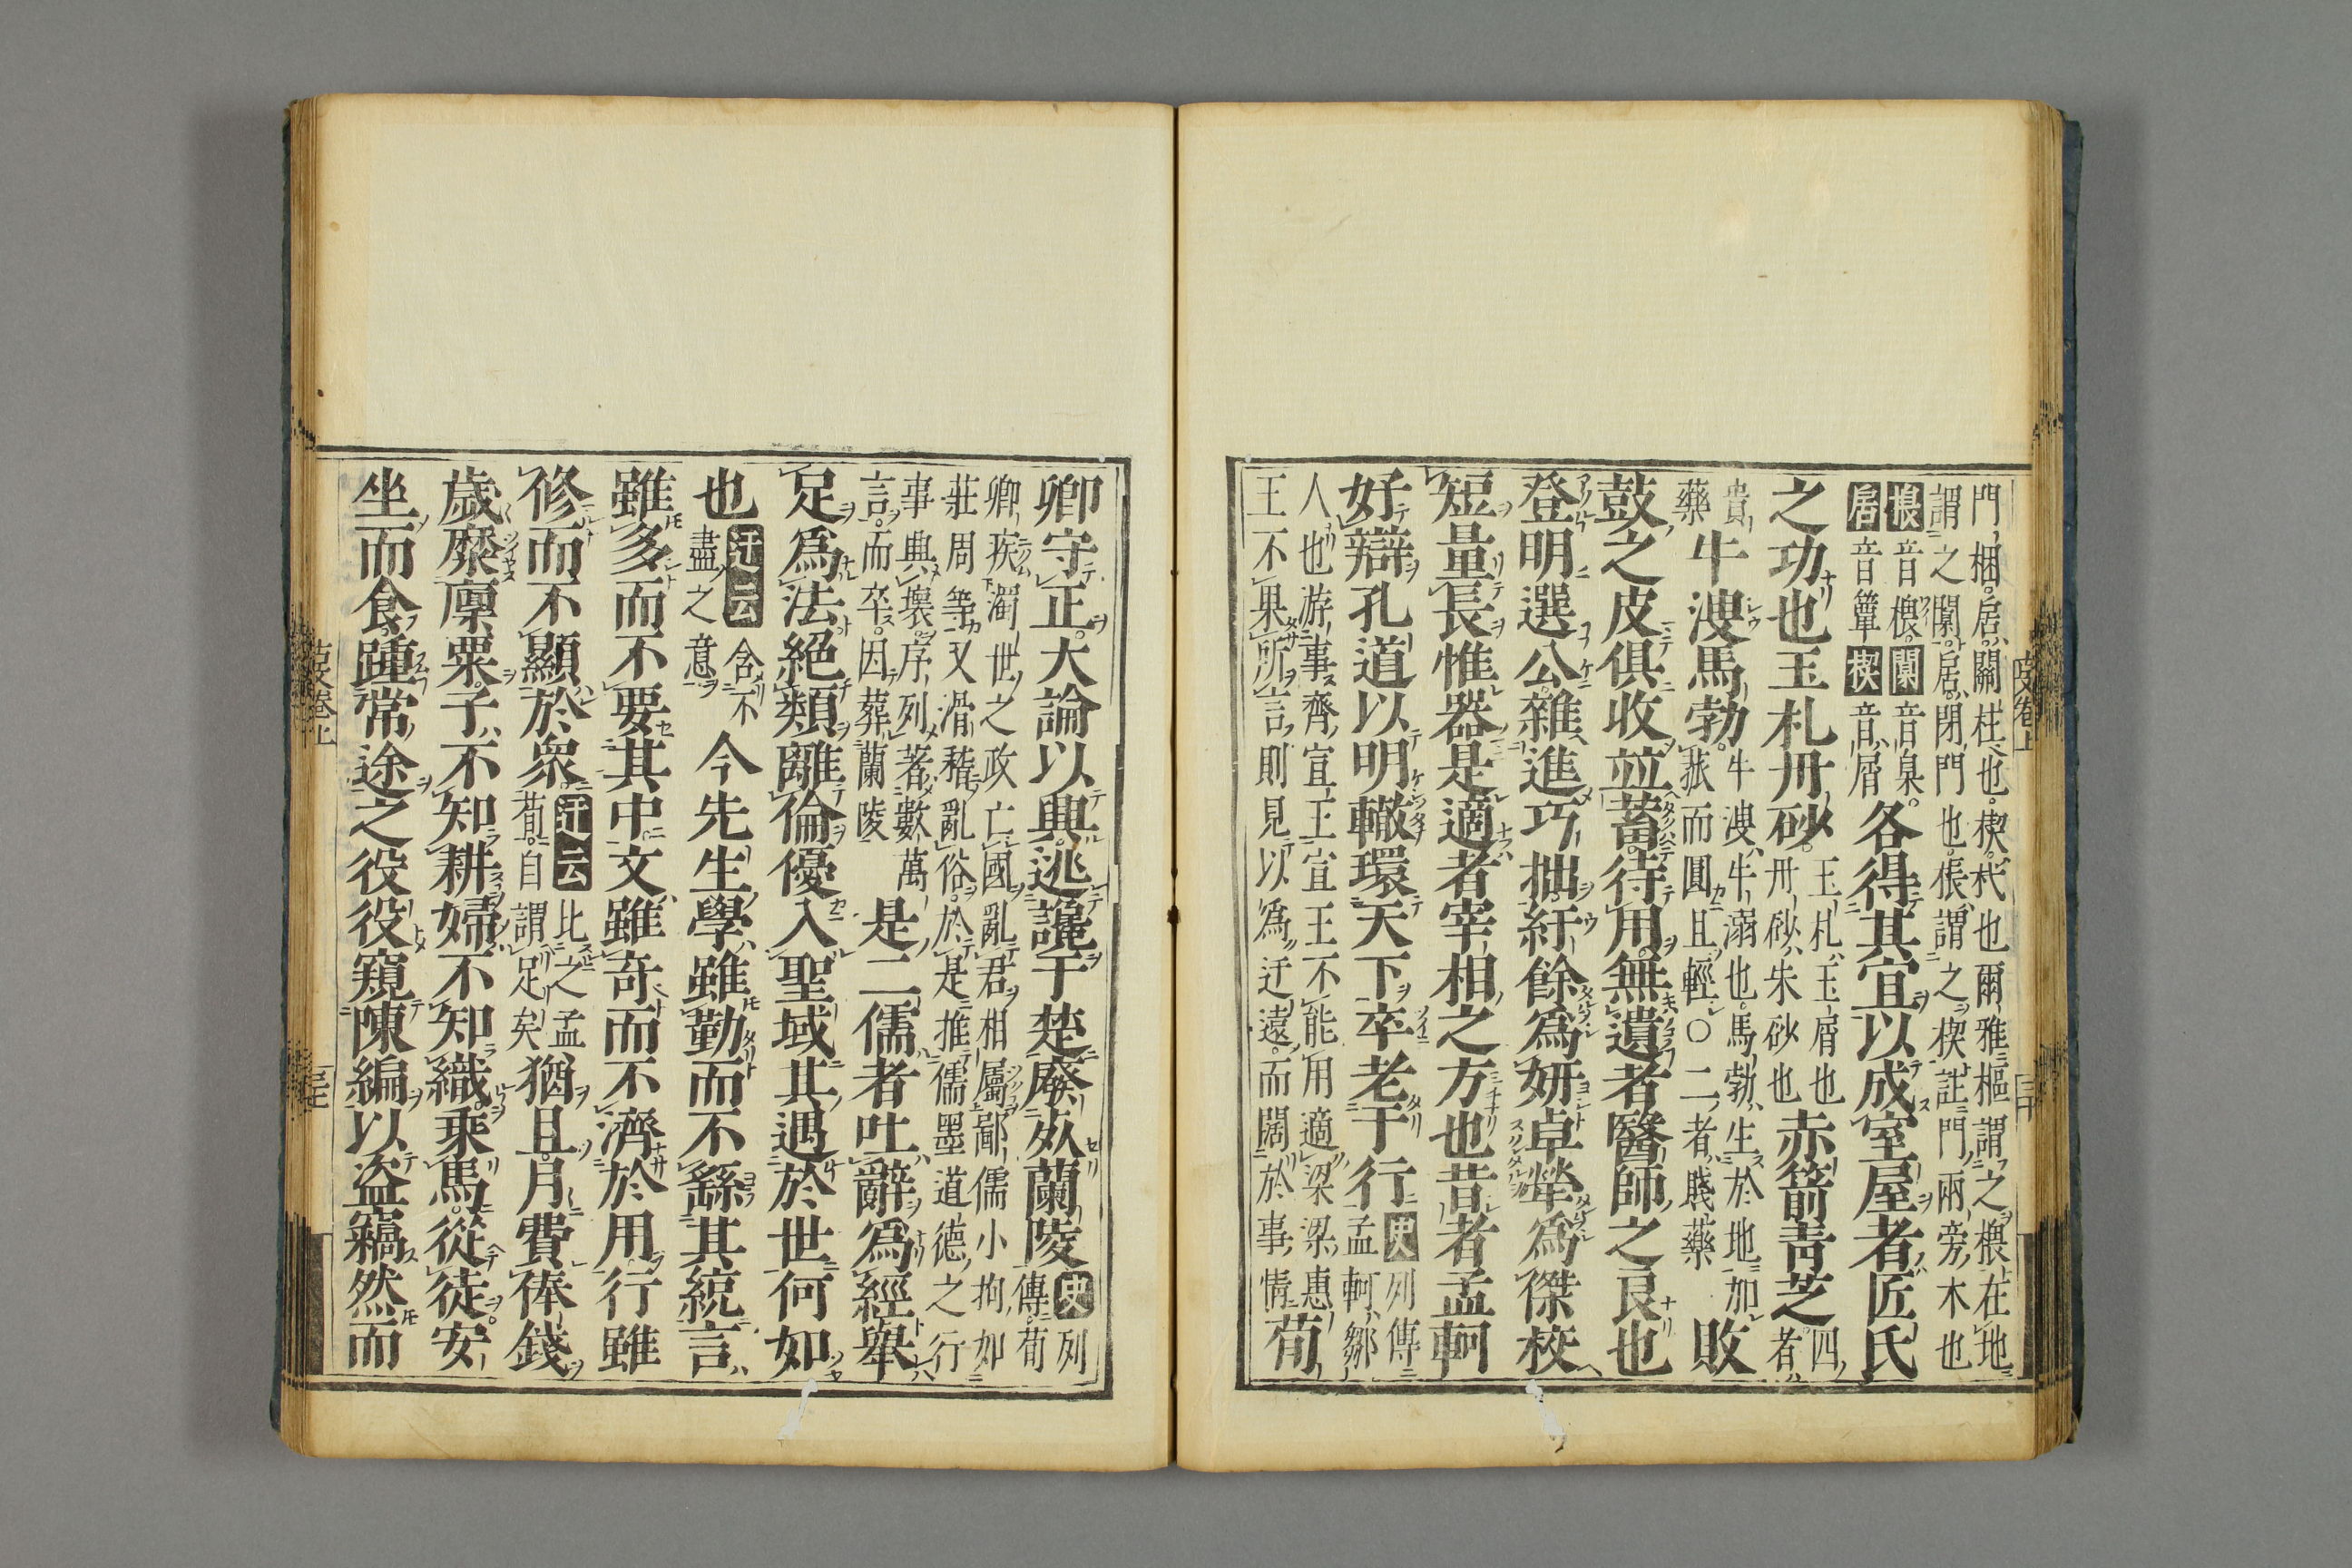 門梱居關柱也楔杙也爾雅樞謂之椳在地
謂之闑居閉門也棖謂之楔註門兩旁木也
椳音椳闑音臬
居音簟楔音屑
各得其宜以成室屋者匠氏
之功也玉札丹砂
玉札玉屑也
丹砂朱砂也
赤箭靑芝
四
者
貴
藥
牛溲馬勃
牛溲牛溺也馬勃生於地加
菰而圓且輕〇二者賤藥
敗
鼓之皮俱收並蓄待用無遺者醫師之良也
登明選公雜進巧拙紆餘爲妍卓犖爲傑校
短量長惟器是適者宰相之方也昔者孟軻
好辯孔道以明轍環天下卒老于行
史列傳
孟軻鄒
人也游事齊宣王宣王不能用適梁梁惠
王不果所言則見以爲迂遠而闊於事情
荀
卿守正大論以興逃讒于楚廢死蘭陵
史列
傳荀
卿疾濁世之政亡國亂君相屬鄙儒小拘如
莊周等又滑稽亂俗於是推儒墨道德之行
事興壞序列著數萬
言而卒因葬蘭陵
是二儒者吐辭爲經舉
足爲法絕類離倫優入聖域其遇於世何如
也
迂云含不
盡之意
今先生學雖勤而不繇其統言
雖多而不要其中文雖奇而不濟於用行雖
修而不顯於衆
迂云比之孟
荀自謂足矣
猶且月費俸錢
歲糜廩粟子不知耕婦不知織乘馬從徒安
坐而食踵常途之役役窺陳編以盜竊然而